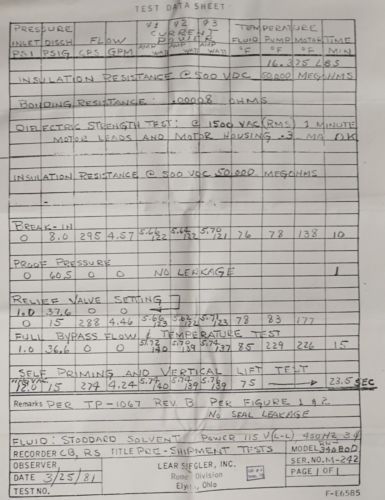 TEST DATA SHEET
PRESSURE FLOW Ø1 Ø2 Ø3 CURRENT POWER TEMPERATURE
INLET DISCH FLUID PUMP MOTOR TIME
PSI PSIG CPS GPM AMP WATT AMP WATT AMP WATT °F °F °F MIN
16.325 LBS
INSULATION RESISTANCE @ 500 VDC 50,000 MEGOHMS
BONDING RESISTANCE: .00008 OHMS
DIELECTRIC STRENGTH TEST: @ 1500 VAC (RMS) 1 MINUTE
MOTOR LEADS AND MOTOR HOUSING .3 MA OK
INSULATION RESISTANCE @ 500 VDC 50,000 MEGOHMS
BREAK-IN
0 8.0 295 4.57 5.66 122 5.64 122 5.70 121 76 78 138 10
PROOF PRESSURE
0 60.5 0 0 NO LEAKAGE 1
RELIEF VALVE SETTING
1.0 37.6 0 0
0 15 288 4.46 5.66 123 5.62 124 5.71 123 78 83 177
FULL BYPASS FLOW & TEMPERATURE TEST
1.0 36.6 0 0 5.72 140 5.70 139 5.74 137 85 229 226 15
SELF PRIMING AND VERTICAL LIFT TEST
12.0 15 274 4.24 5.74 140 139 139 75 23.5 SEC
Remarks PER TP-1067 REV. B PER FIGURE 1 & 2
NO SEAL LEAKAGE
FLUID: STODDARD SOLVENT POWER 115 V(L-L) 400HZ 3Ø
RECORDER CB, RS TITLE PRE-SHIPMENT TESTS MODEL
OBSERVER LEAR SIEGLER, INC. SER. NO. M-242
DATE 3/25/81 Rome Division PAGE 1 OF 1
Elyria, Ohio
F-E6585